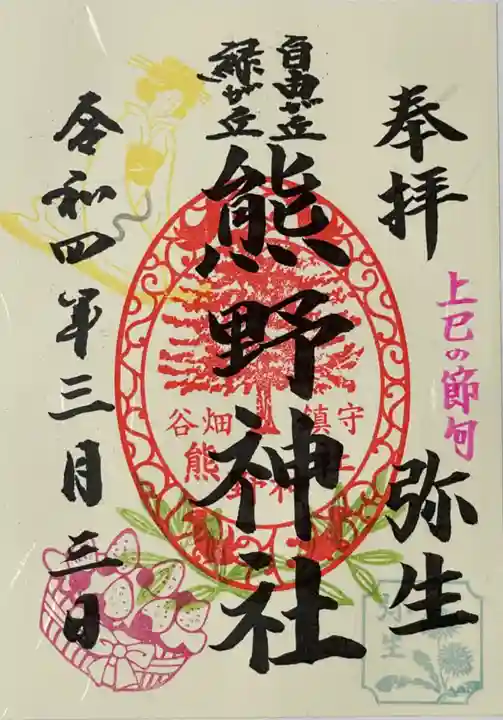 奉拝
上巳の節句
弥生
弥生
自由が丘
緑が丘
熊野神社
谷畑 鎮守
熊野神社
令和四年三月三日